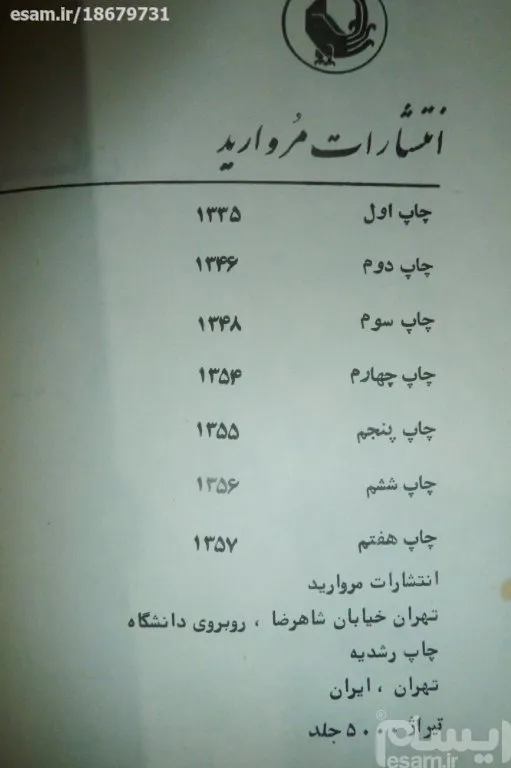 esam.ir/18679731
انتشارات مُروارید
چاپ اول ۱۳۳۵
چاپ دوم ۱۳۴۶
چاپ سوم ۱۳۴۸
چاپ چهارم ۱۳۵۴
چاپ پنجم ۱۳۵۵
چاپ ششم ۱۳۵۶
چاپ هفتم ۱۳۵۷
انتشارات مروارید
تهران خیابان شاهرضا ، روبروی دانشگاه
چاپ رشدیه
تهران ، ایران
تیراژ ۵۰۰ جلد
ایسام®
esam.ir